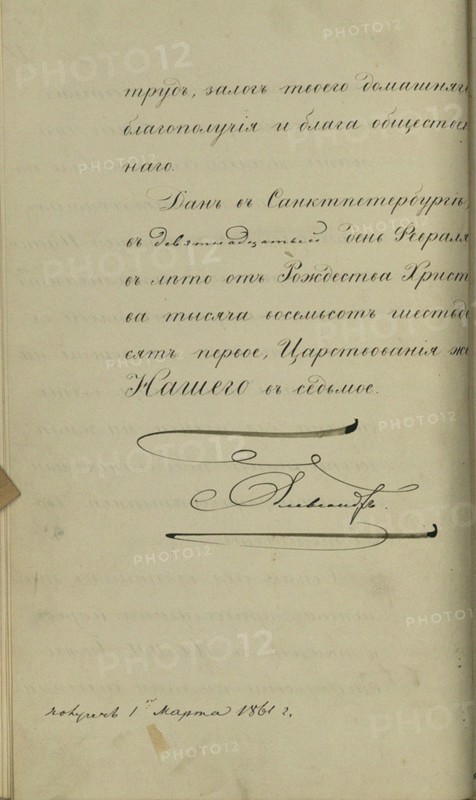 трудъ, залогъ твоего домашняг
благополучія и блага обществен
наго.
Данъ въ Санктпетербургѣ,
въ девятнадцатый день Февраля
въ лѣто отъ Рождества Христ
ва тысяча восемьсотъ шестьде
сятъ первое, Царствованія же
Нашего въ седьмое.
Александръ.
1го Марта 1861 г.
PHOTO12